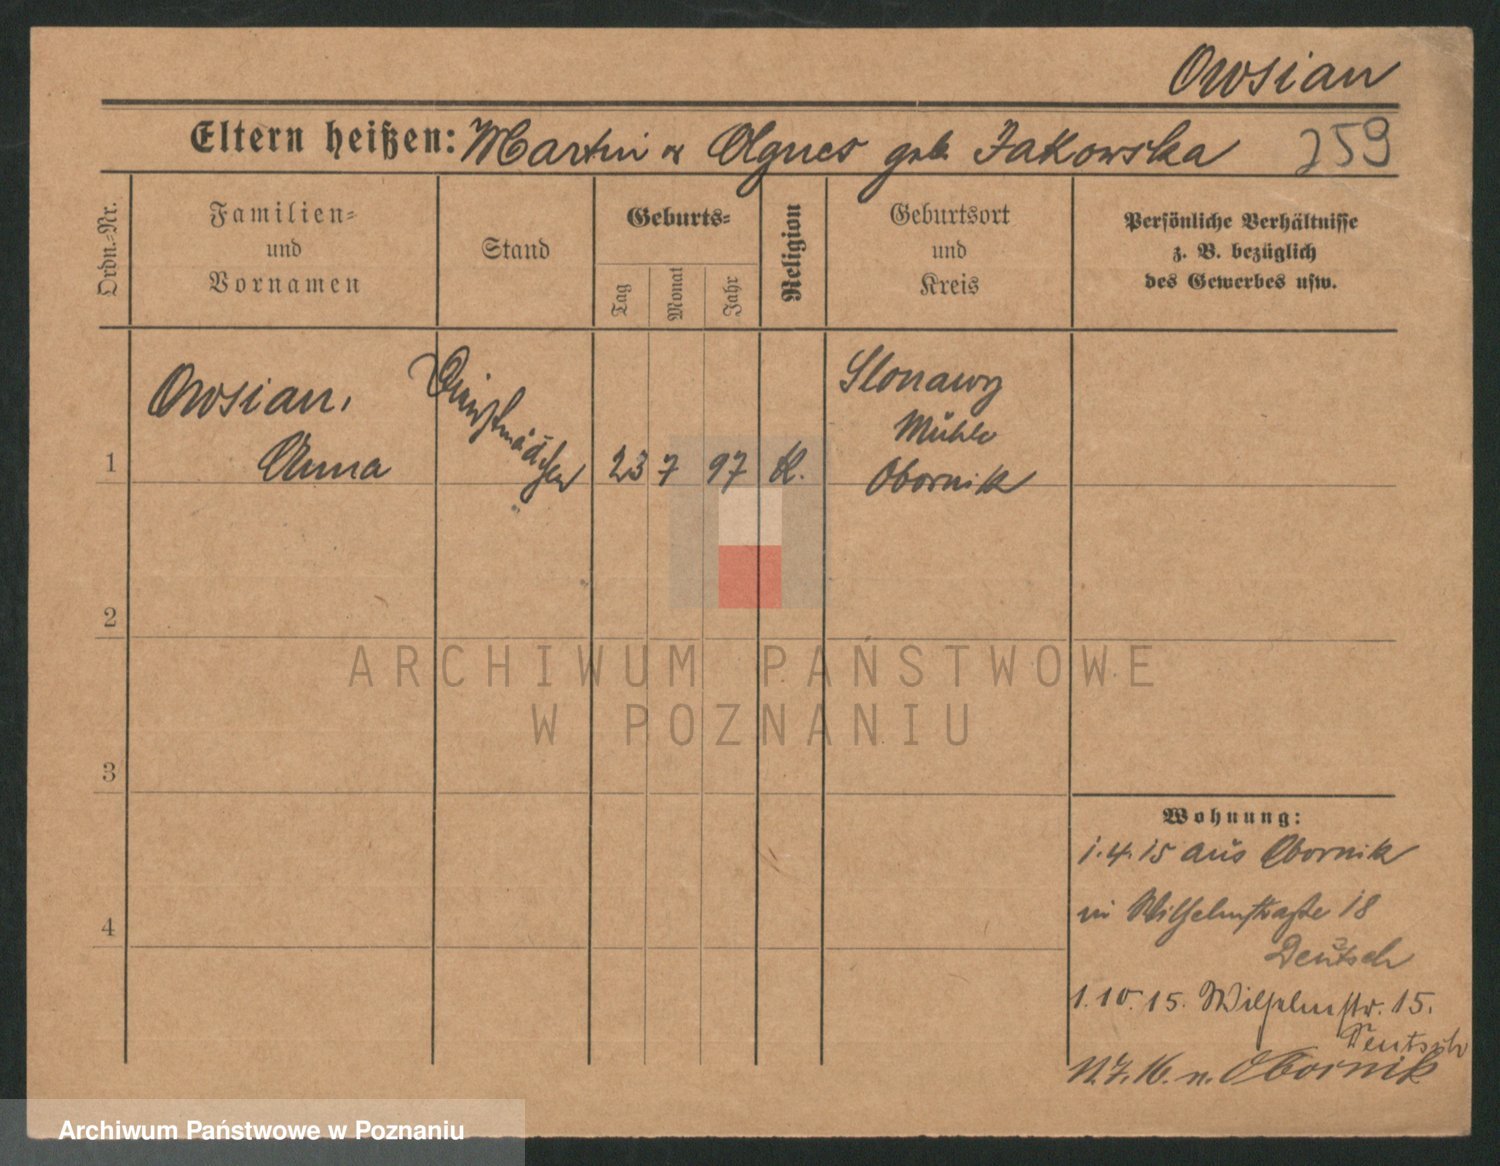 Owsian
Eltern heißen: Martin u Agnes geb. Jakowska 259
Ordn.-Nr.
Familien-
und
Vornamen
Stand
Geburts-
Tag
Monat
Jahr
Religion
Geburtsort
und
Kreis
Persönliche Verhältnisse
z. B. bezüglich
des Gewerbes usw.
1
Owsian,
Anna
Dienstmädchen
23 7 97 K.
Slonawy
Mühle
Obornik
2
3
4
Wohnung:
1.4.15 aus Obornik
in Wilhelmstraße 18
Deutsch
1.10.15. Wilhelmstr. 15.
Deutsch
7.16. n. Obornik
ARCHIWUM PAŃSTWOWE
W POZNANIU
Archiwum Państwowe w Poznaniu